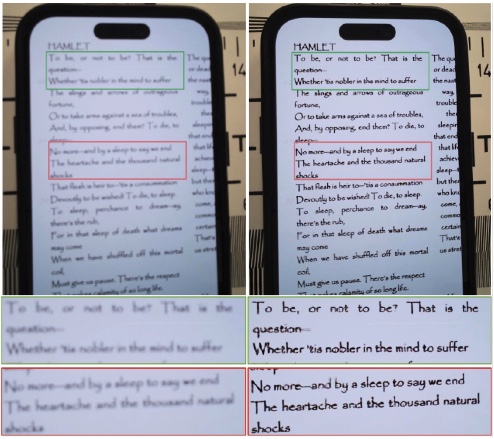 HAMLET
To be, or not to be? That is the
question—
Whether 'tis nobler in the mind to suffer
The slings and arrows of outrageous
fortune,
Or to take arms against a sea of troubles,
And, by opposing, end them? To die, to
sleep—
No more—and by a sleep to say we end
The heartache and the thousand natural
shocks
That flesh is heir to—'tis a consummation
Devoutly to be wished! To die, to sleep
To sleep, perchance to dream—ay,
there's the rub,
For in that sleep of death what dreams
may come
When we have shuffled off this mortal
coil,
Must give us pause. There's the respect
calamity of so long life.
14
HAMLET
To be, or not to be? That is the
question—
Whether 'tis nobler in the mind to suffer
The slings and arrows of outrageous
fortune,
Or to take arms against a sea of troubles,
And, by opposing, end them? To die, to
sleep—
No more—and by a sleep to say we end
The heartache and the thousand natural
shocks
That flesh is heir to—'tis a consummation
Devoutly to be wished! To die, to sleep
To sleep, perchance to dream—ay,
there's the rub,
For in that sleep of death what dreams
may come
When we have shuffled off this mortal
coil,
Must give us pause. There's the respect
calamity of so long life.
or dead
way,
come,
certain
That's
14
To be, or not to be? That is the
question—
Whether 'tis nobler in the mind to suffer
To be, or not to be? That is the
question—
Whether 'tis nobler in the mind to suffer
No more—and by a sleep to say we end
The heartache and the thousand natural
shocks
No more—and by a sleep to say we end
The heartache and the thousand natural
shocks